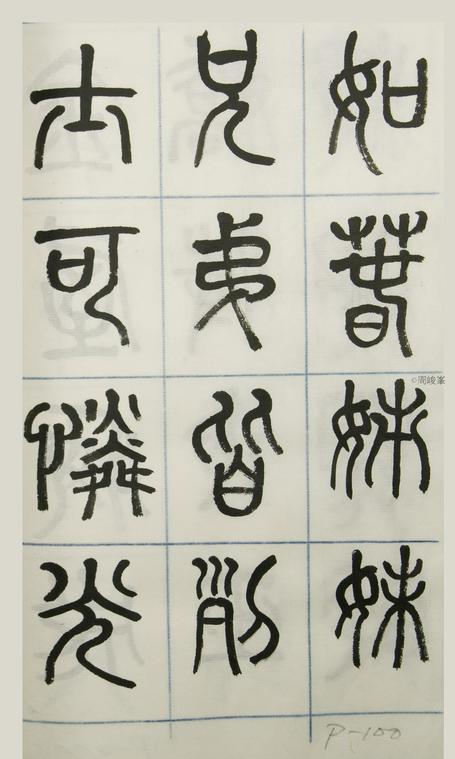 如春姊妹
兄弟皆列
土可憐光
©周峻峯
P-100